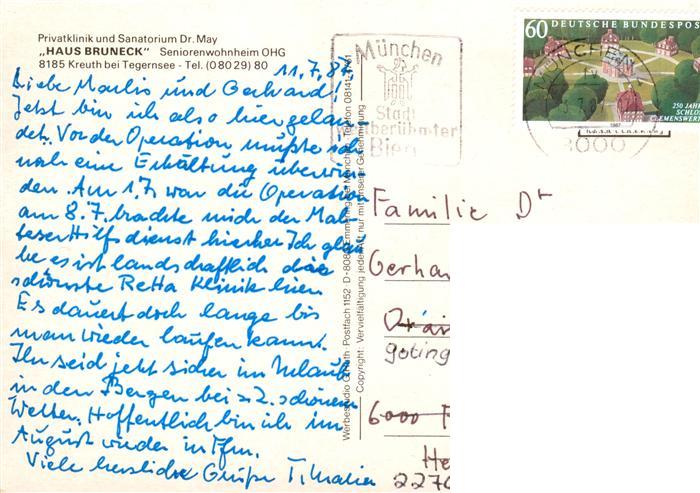 Privatklinik und Sanatorium Dr. May
„HAUS BRUNECK" Seniorenwohnheim OHG
8185 Kreuth bei Tegernsee - Tel. (0 80 29) 80
11.7.87
Liebe Marlis und Gerhard!
Jetzt bin ich also hier gelan
det. Vor der Operation mußte ich
noch eine Erkältung überwin
den. Am 1.7. war die Operation
am 8.7. brachte mich der Mal
teser Hilfsdienst hierher. Ich glau
be es ist landschaftlich die
schönste Reha Klinik hier.
Es dauert doch lange bis
man wieder laufen kann.
Ihr seid jetzt sicher im Urlaub
in den Bergen bei z.Z. schönem
Wetter. Hoffentlich bin ich im
August wieder in Ffm.
Viele herzliche Grüße T. Maria
Werbestudio Postfach 1152 D-808 Emmering bei München, Telefon 08141
Copyright: Vervielfältigung jeder Art nur mit unserer Genehmigung
München
Stadt
weltberühmter
Bier
60 DEUTSCHE BUNDESPOST
250 JAHRE
SCHLOSS
CLEMENSWERTH
1987
MÜNCHEN
8000
Familie Dr
Gerha
göting
6000 F
He
2270